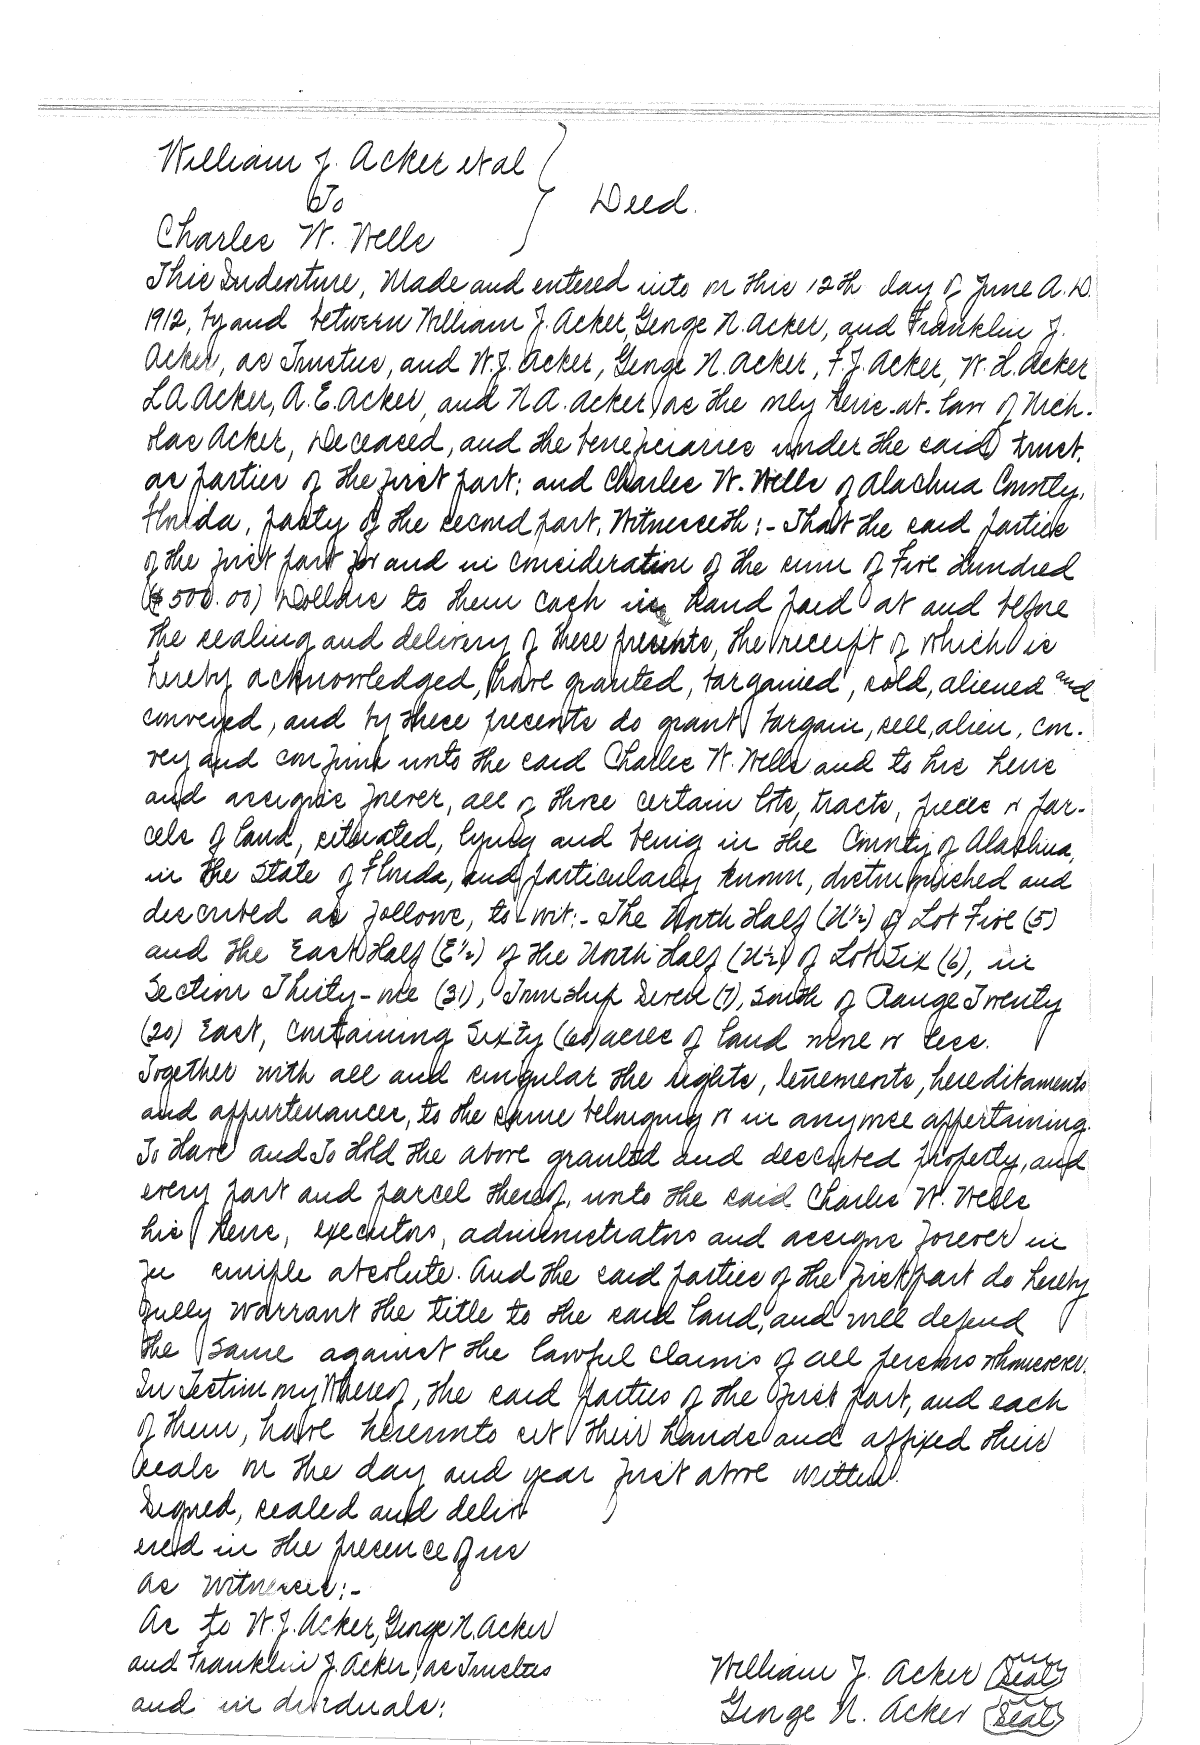 William J. Acker et al
To
Deed.
Charles W. Wells
This Indenture, Made and entered into on this 12th day of June A.D.
1912, by and between William J. Acker, George N. Acker, and Franklin J.
Acker, as Trustees, and W.J. Acker, George N. Acker, F.J. Acker, W.L. Acker
L.A. Acker, A.E. Acker, and N.A. Acker, as the only heirs-at-law of Nich-
olas Acker, Deceased, and the beneficiaries under the said trust,
as parties of the first part; and Charles W. Wells of Alachua County,
Florida, party of the second part, Witnesseth:- That the said parties
of the first part for and in consideration of the sum of Five Hundred
($500.00) Dollars to them cash in hand paid at and before
the sealing and delivery of these presents, the receipt of which is
hereby acknowledged, have granted, bargained, sold, aliened and
conveyed, and by these presents do grant, bargain, sell, alien, con-
vey and confirm unto the said Charles W. Wells and to his heirs
and assigns forever, all of those certain lots, tracts, pieces or par-
cels of land, situated, lying and being in the County of Alachua,
in the State of Florida, and particularly known, distinguished and
described as follows, to-wit:- The North Half (N½) of Lot Five (5)
and the East Half (E½) of the North Half (N½) of Lot Six (6), in
Section Thirty-one (31), Township Seven (7), South of Range Twenty
(20) East, containing Sixty (60) acres of land more or less.
Together with all and singular the rights, tenements, hereditaments
and appurtenances, to the same belonging or in anywise appertaining.
To Have and To Hold the above granted and described property, and
every part and parcel thereof, unto the said Charles W. Wells
his heirs, executors, administrators and assigns forever in
fee simple absolute. And the said parties of the first part do hereby
fully warrant the title to the said land, and will defend
the same against the lawful claims of all persons whomsoever.
In Testimony Whereof, the said parties of the first part, and each
of them, have hereunto set their hands and affixed their
seals on the day and year first above written.
Signed, sealed and deliv
ered in the presence of us
as witnesses:-
As to W.J. Acker, George N. Acker
and Franklin J. Acker, as Trustees
and individuals:
William J. Acker (Seal)
George N. Acker (Seal)